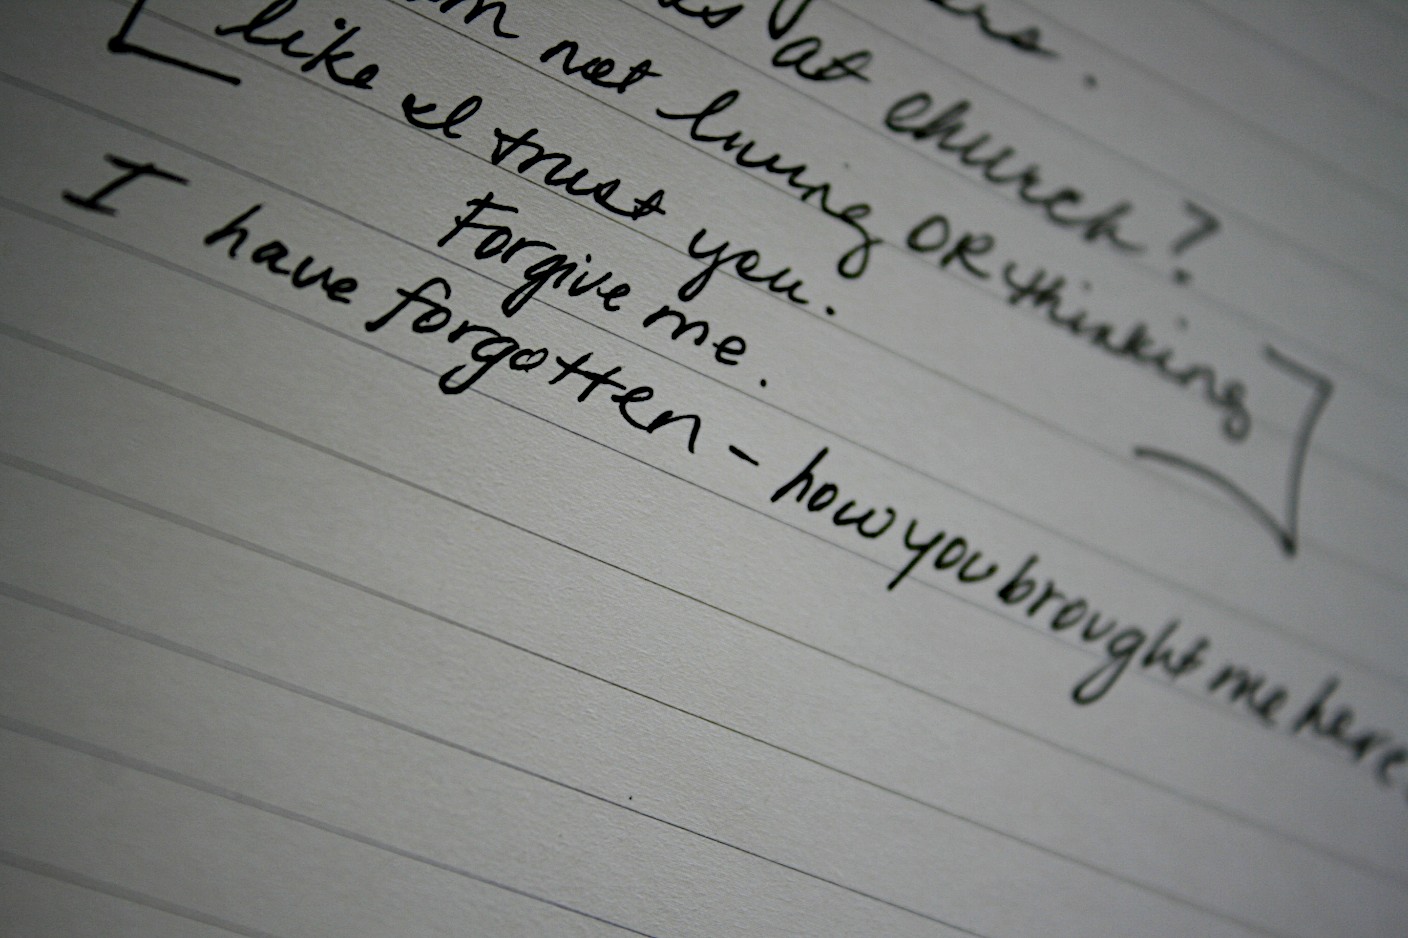 at church?
not living OR thinking
like I trust you.
Forgive me.
I have forgotten - how you brought me here